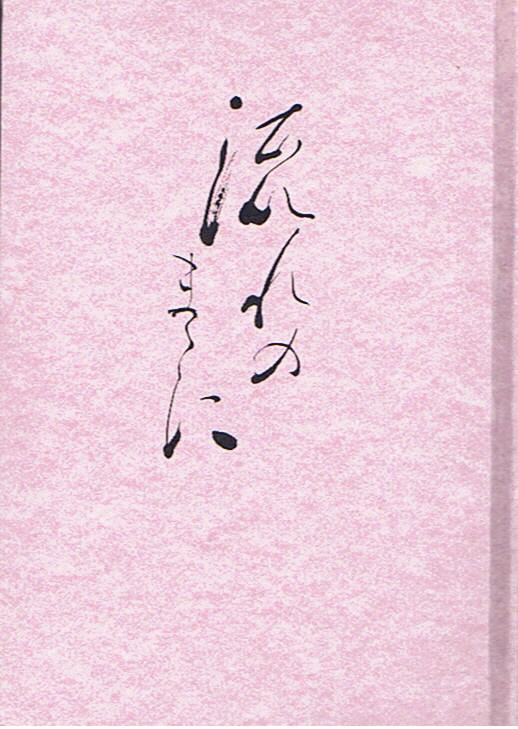 流れの
まゝに